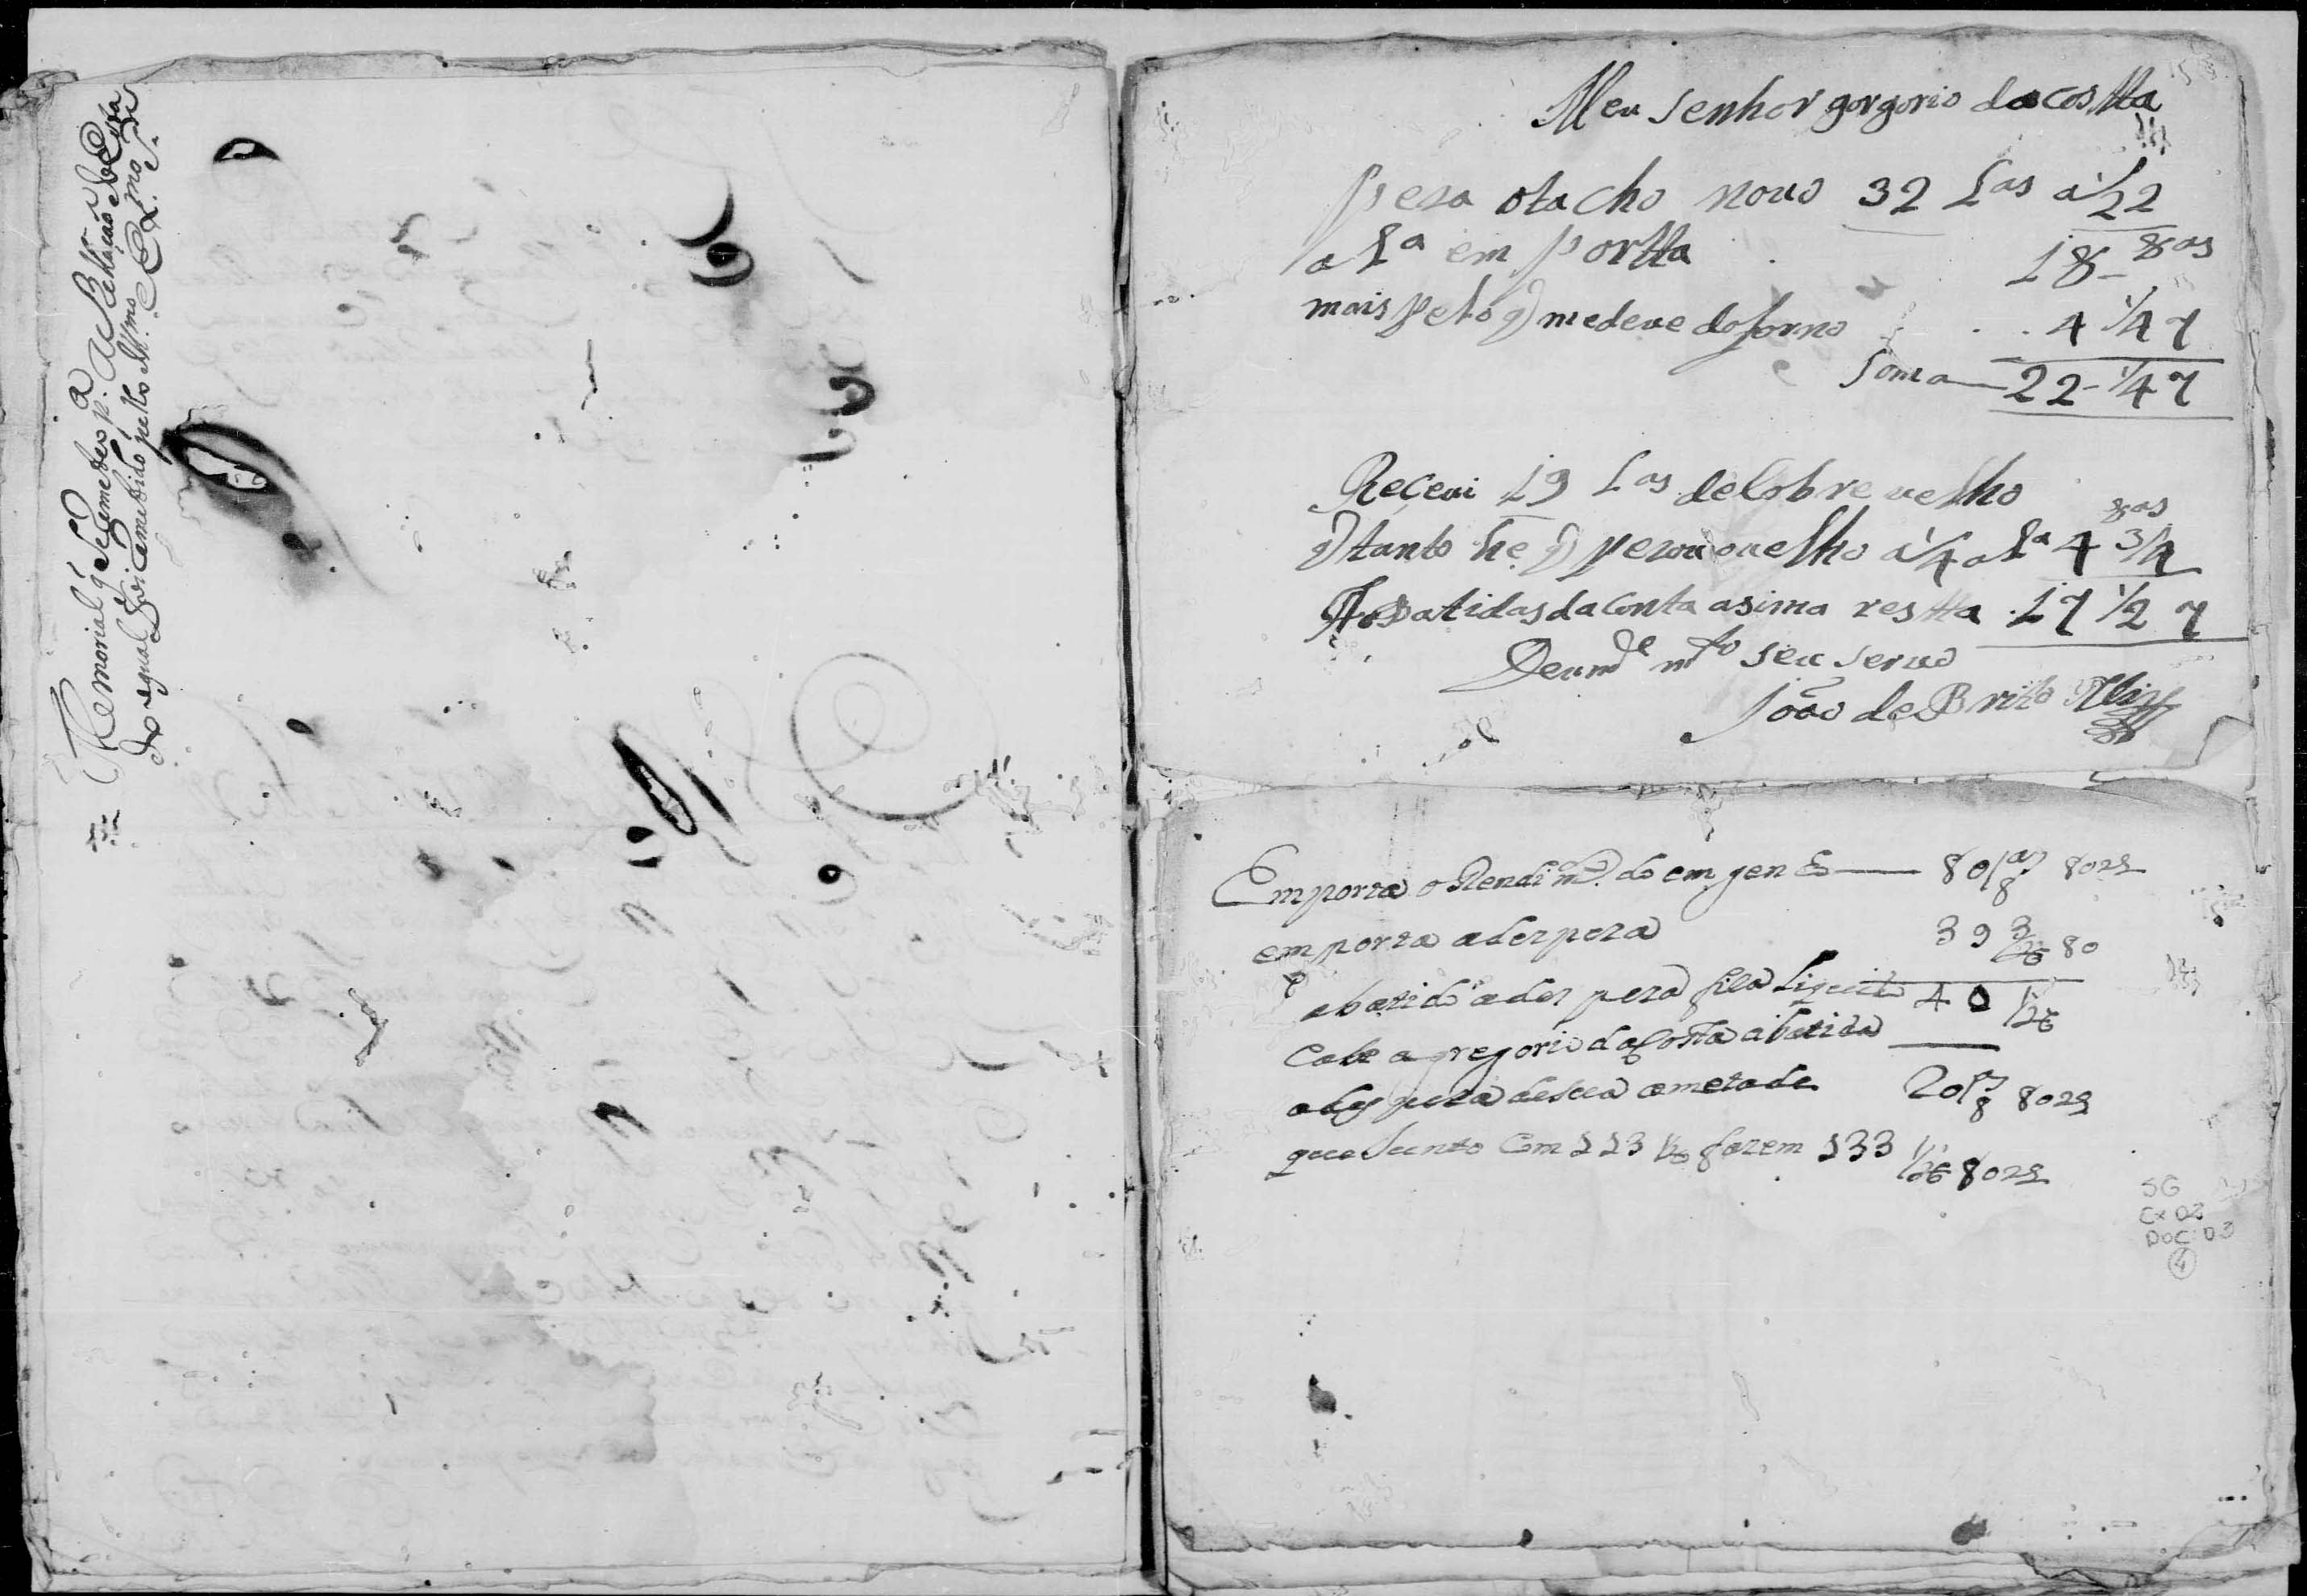 Memorial q̃ se Rameteo p.ª a Rellação da Cid.ª
do qual foi Remetido pello Ill.mo Ex.mo S.r
Meu senhor gorgorio da costta
peza o tacho nouo 32 Las a 1/22
a La em portta 18 8as
mais pelo q̃ me deue do forno 4 1/4 7
Soma 22 1/4 7
Reçeui 19 Las de Cobre uelho
q̃ tanto he q̃ pezou o uelho a 1/4 a La 4 3/4 8as
Abatidas da Conta asima restta 17 1/2 7
De vm.de m.to seu seruo
João de Brito
Emporta o Rendim.to do emgenho 80 8as
emporta a despeza 39 3/ 80
abatido a despeza fica Liquido 40 1/
Cabe a gregorio da Costa abatida
a despeza desua ametade 20 8as
que Junto Com 113 1/ fazem 133 1/
SG
Cx 03
DOC 03
4